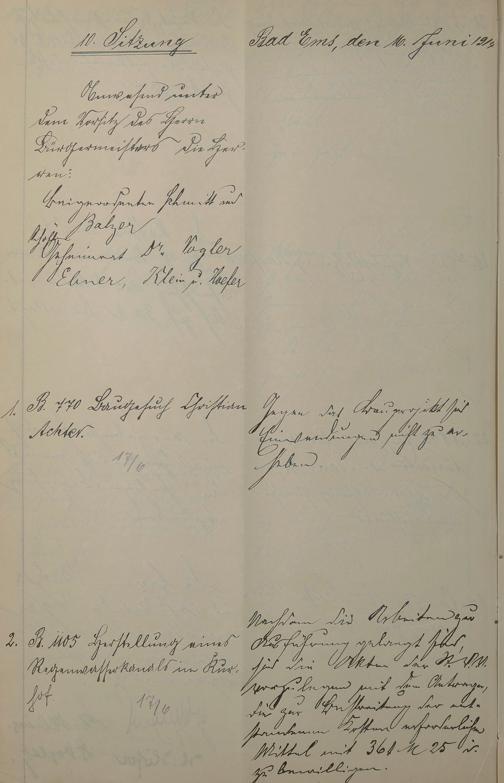 10. Sitzung
Bad Ems, den 16. Juni 191
Anwesend unter
dem Vorsitz des Herrn
Bürgermeisters die Her-
ren:
Beigeordneten Schmitt und
Balzer
Geheimrat Dr. Vogler
Ebner, Klein u. Hoefer
1. B. 770 Baugesuch Christian
Achter.
17/6
Gegen das Bauprojekt sind
Einwendungen nicht zu er-
heben.
2. B. 1105 Herstellung eines
Regenwasserkanals im Kur-
hof
17/6
Nachdem die Arbeiten zur
Ausführung gelangt sind,
sind die Akten der St. V. V.
vorzulegen mit dem Antrage,
die zur Bestreitung der ent-
standenen Kosten erforderlichen
Mittel mit 361 M 25
zu bewilligen.